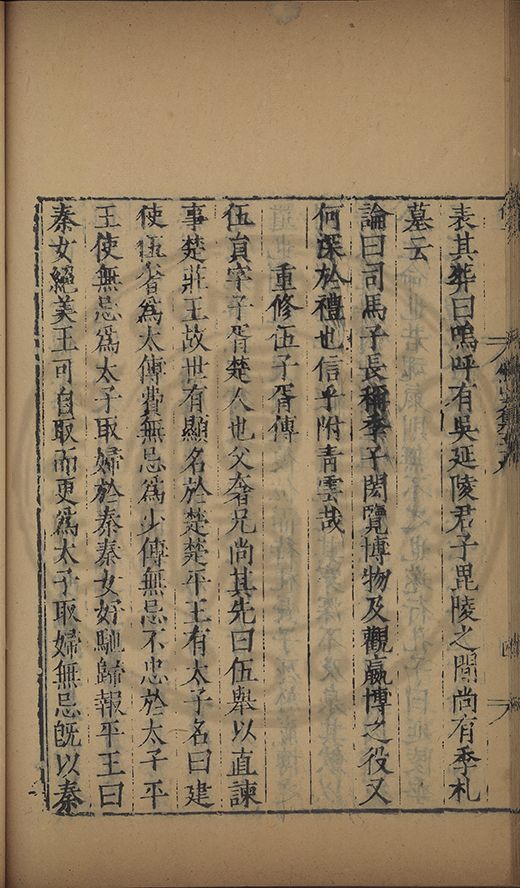 表其葬曰嗚呼有吳延陵君子毘陵之間尚有季札
墓云
論曰司馬子長稱季子閎覽博物及觀嬴博之役又
何深於禮也信乎附青雲哉
重修伍子胥傳
伍員字子胥楚人也父奢兄尚其先曰伍舉以直諫
事楚莊王故世有顯名於楚楚平王有太子名曰建
使伍奢爲太傅費無忌爲少傅無忌不忠於太子平
王使無忌爲太子取婦於秦秦女好馳歸報平王曰
秦女絕美王可自取而更爲太子取婦無忌旣以秦